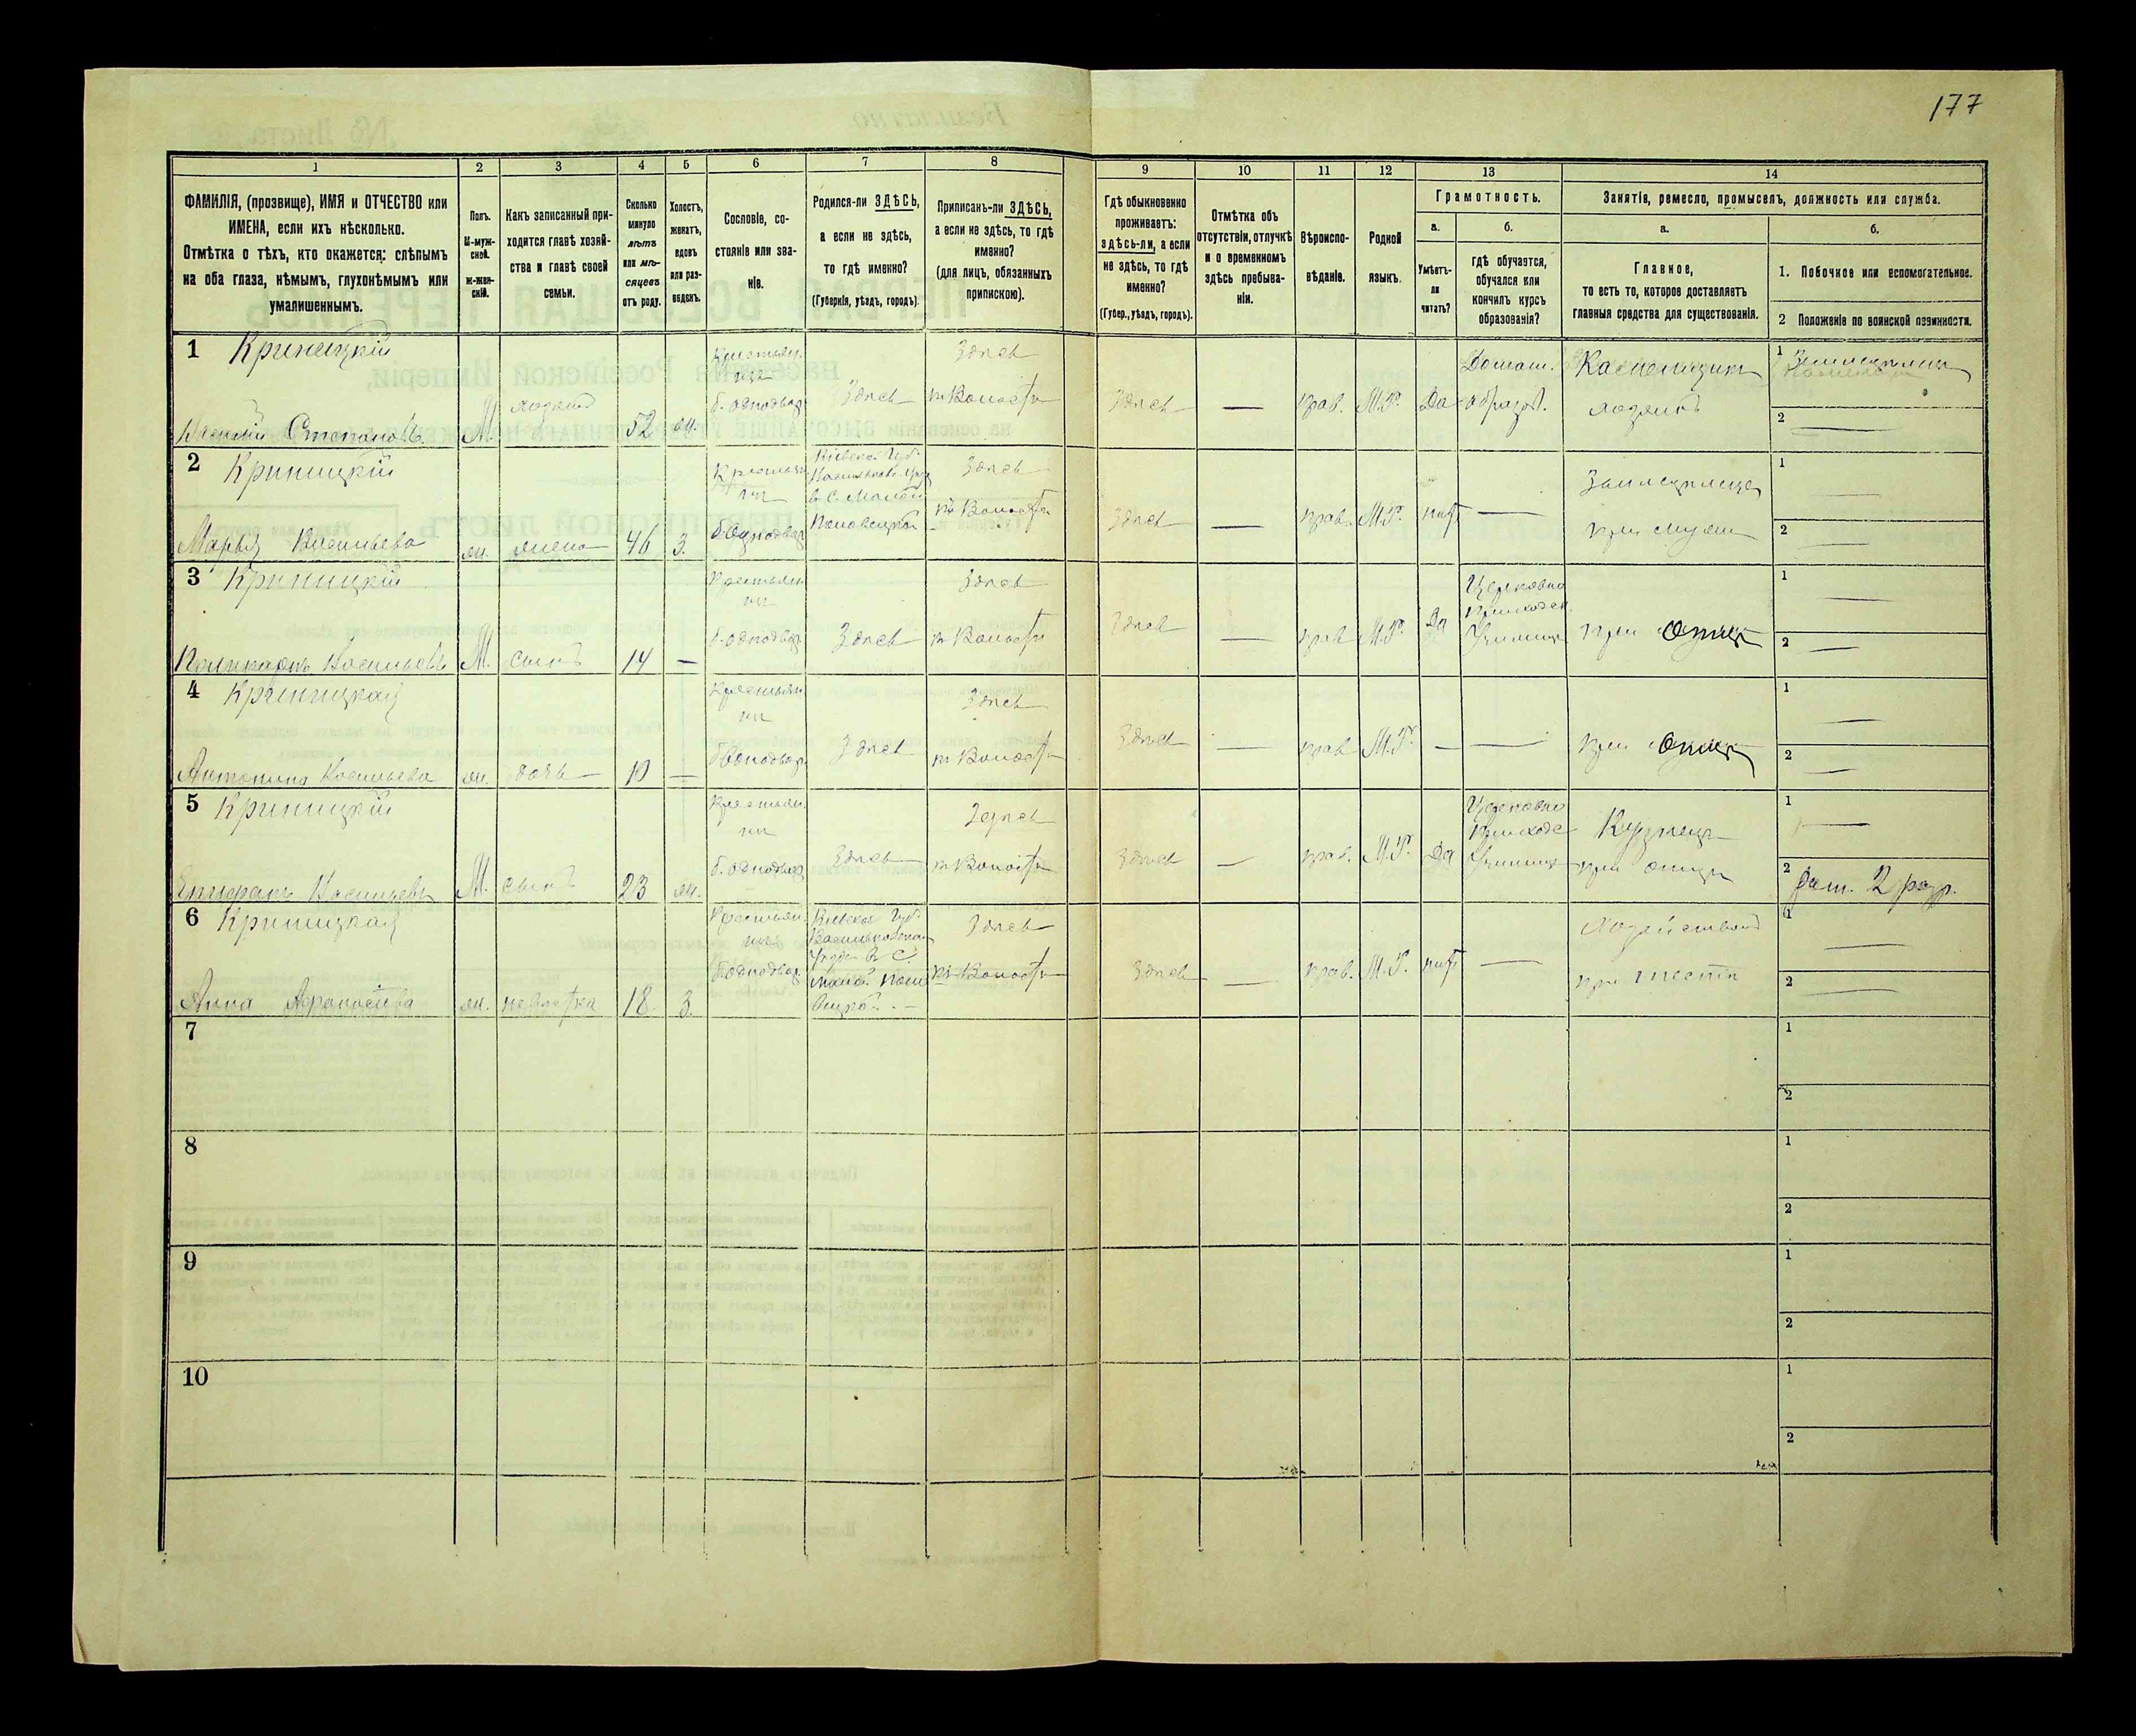 177
1
2
3
4
5
6
7
8
9
10
11
12
13
14
ФАМИЛІЯ, (прозвище), ИМЯ и ОТЧЕСТВО или
ИМЕНА, если ихъ нѣсколько.
Отмѣтка о тѣхъ, кто окажется: слѣпымъ
на оба глаза, нѣмымъ, глухонѣмымъ или
умалишеннымъ.
Полъ.
М-муж-
ской.
Ж-жен-
скій.
Какъ записанный при-
ходится главѣ хозяй-
ства и главѣ своей
семьи.
Сколько
минуло
лѣтъ
или мѣ-
сяцевъ
отъ роду.
Холостъ,
женатъ,
вдовъ
или раз-
веденъ.
Сословіе, со-
стояніе или зва-
ніе.
Родился-ли ЗДѢСЬ,
а если не здѣсь,
то гдѣ именно?
(Губернія, уѣздъ, городъ).
Приписанъ-ли ЗДѢСЬ,
а если не здѣсь, то гдѣ
именно?
(для лицъ, обязанныхъ
припискою).
Гдѣ обыкновенно
проживаетъ:
здѣсь-ли, а если
не здѣсь, то гдѣ
именно?
(Губер., уѣздъ, городъ).
Отмѣтка объ
отсутствіи, отлучкѣ
и о временномъ
здѣсь пребыва-
ніи.
Вѣроиспо-
вѣданіе.
Родной
языкъ.
Грамотность.
а.
Умѣетъ-
ли
читать?
б.
гдѣ обучается,
обучался или
кончилъ курсъ
образованія?
Занятіе, ремесло, промыселъ, должность или служба.
а.
Главное,
то есть то, которое доставляетъ
главныя средства для существованія.
б.
1. Побочное или вспомогательное.
2 Положеніе по воинской повинности.
1
Криницкій
Василій Степановъ
М.
хозяинъ
52
ж.
Крестьян.
инъ
б. однодвор.
Здѣсь
Здѣсь
къ Волости
Здѣсь
—
прав.
М.Р.
Да
Домаш.
образов.
хозяинъ
1
2
2
Криницкій
Марья Васильева
ж.
жена
46
З.
Крестьян
б. однодвор.
Кіевской Губ.
в. С. Малой
Здѣсь
къ Волости
Здѣсь
—
прав.
М.Р.
нѣтъ
—
при мужѣ
1
2
3
Криницкій
Поликарпъ Васильевъ
М.
сынъ
14
—
Крестьян
б. однодвор.
Здѣсь
Здѣсь
къ Волости
Здѣсь
—
прав
М.Р.
Да
Церковно
приходск.
Училище
при отцѣ
1
2
4
Криницкая
Антонина Васильева
ж.
дочь
10
—
Крестьян
б. однодвор.
Здѣсь
Здѣсь
къ Волости
Здѣсь
—
прав
М.Р.
—
—
при отцѣ
1
2
5
Криницкій
Епифанъ Васильевъ
М.
сынъ
23
ж.
Крестьян.
б. однодвор
Здѣсь
Здѣсь
къ Волости
Здѣсь
—
прав.
М.Р.
Да
Церковно
приходс
Училище
Кузнецъ
при отцѣ
1
2
рат. 2 разр.
6
Криницкая
Анна Афанасіева
ж.
невѣстка
18
З.
Крестьян.
б. однодвор.
Кіевской Губ.
Васильковскаго
Уѣзда в С.
Здѣсь
къ Волости
Здѣсь
—
прав.
М.Р.
нѣтъ
—
при тестѣ
1
2
7
1
2
8
1
2
9
1
2
10
1
2